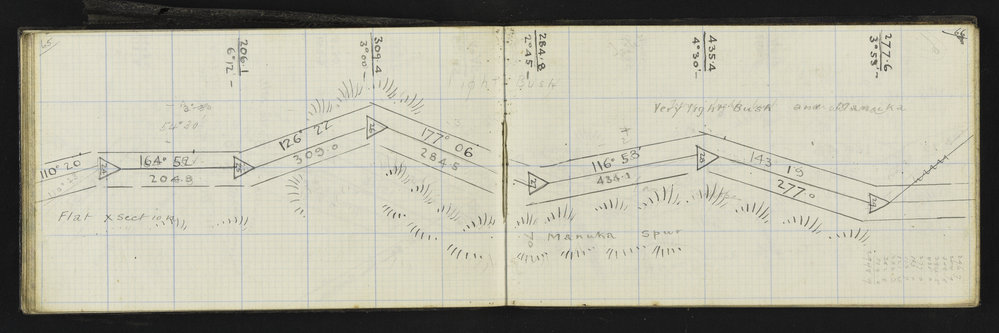 65
206.1
6° 12' –
309.4
3° 00' –
284.8
2° 45' –
435.4
4° 30' –
277.6
3° 53' –
Light Bush
Very Light Bush and Manuka
110° 20'
24
164° 59'
204.9
25
126° 22
309.0
26
177° 06
284.5
27
116° 53'
434.1
28
143 19
277.0
29
Flat x section
Manuka Spur